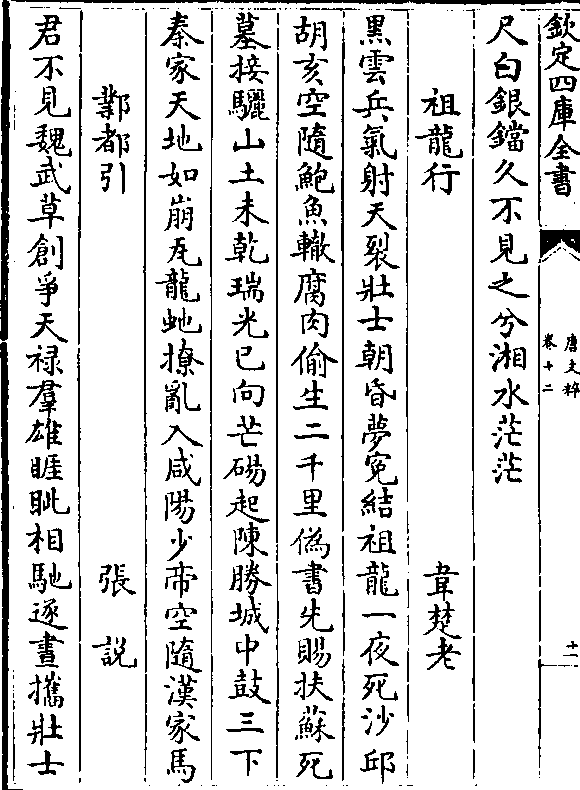 欽定四庫全書
唐文粹
卷十二
十一
尺白銀鐺久不見之兮湘水茫茫
祖龍行 韋楚老
黑雲兵氣射天裂壯士朝昏夢寃結祖龍一夜死沙邱
胡亥空隨鮑魚轍腐肉偷生二千里偽書先賜扶蘇死
墓接驪山土未乾瑞光已向芒碭起陳勝城中鼓三下
秦家天地如崩瓦龍虵撩亂入咸陽少帝空隨漢家馬
鄴都引 張說
君不見魏武草創爭天禄羣雄睚眦相馳逐晝攜壯士